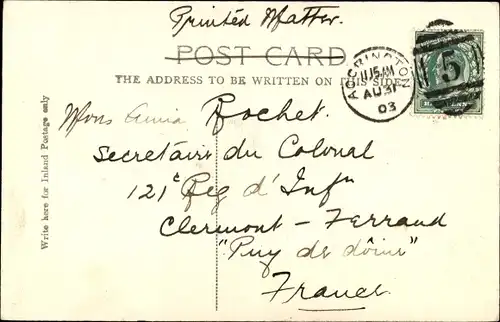 Printed Matter.
POST CARD
THE ADDRESS TO BE WRITTEN ON THIS SIDE
ACCRINGTON
AU 31
03
5
Mons Rochet.
Secretaire du Colonal
121e Reg d' Infn
Clermont - Ferrand
"Puy de dôme"
France
Write here for Inland Postage only